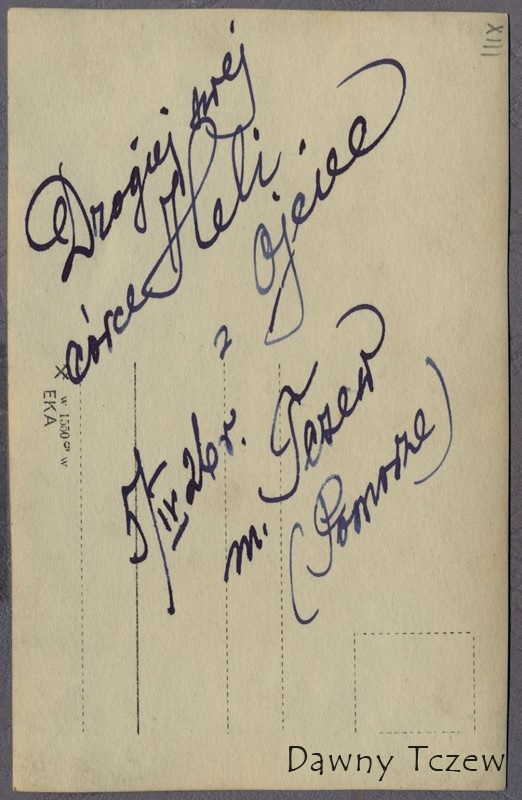 XIII
Drogiej swej
córce Heli
Ojciec
z
5/IV 26 r.
m. Tczew
(Pomorze)
EKA
Dawny Tczew